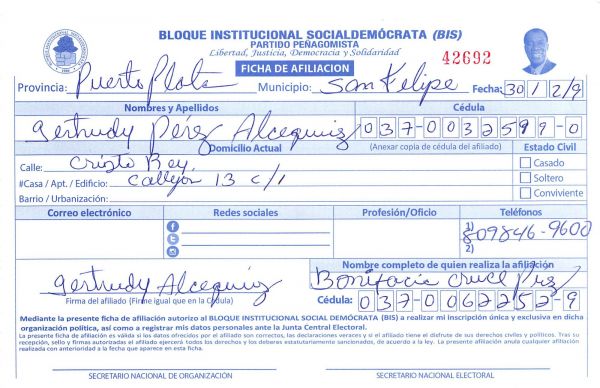 BLOQUE INSTITUCIONAL SOCIALDEMÓCRATA (BIS)
PARTIDO PEÑAGOMISTA
Libertad, Justicia, Democracia y Solidaridad
FICHA DE AFILIACION
42692
Provincia: Puerto Plata Municipio: San Felipe Fecha: 30/2/9
Nombres y Apellidos Cédula
Gertrudy Pérez Alcequiez 037-0032599-0
Domicilio Actual (Anexar copia de cédula del afiliado) Estado Civil
Calle: Cristo Rey Casado
#Casa / Apt. / Edificio: Callejon 13 c/1 Soltero
Barrio / Urbanización: Conviviente
Correo electrónico Redes sociales Profesión/Oficio Teléfonos
1) 809846-9600
2)
Nombre completo de quien realiza la afiliación
Gertrudy Alcequiez Bonifacia Cruz Prez
Firma del afiliado (Firme igual que en la Cédula) Cédula: 037-0062252-9
Mediante la presente ficha de afiliación autorizo al BLOQUE INSTITUCIONAL SOCIAL DEMÓCRATA (BIS) a realizar mi inscripción única y exclusiva en dicha
organización política, así como a registrar mis datos personales ante la Junta Central Electoral.
La presente ficha de afiliación es válida si los datos ofrecidos por el afiliado son correctos, las declaraciones veraces y si el afiliado tiene el disfrute de sus derechos civiles y políticos. Tras su
recepción, sello y firmas autorizadas el afiliado ejercerá todos los derechos y los deberes estatutariamente sancionados, de acuerdo a la ley. La presente afiliación anula cualquier afiliación
realizada con anterioridad a la fecha que aparece en esta ficha.
SECRETARIO NACIONAL DE ORGANIZACIÓN SECRETARIO NACIONAL ELECTORAL